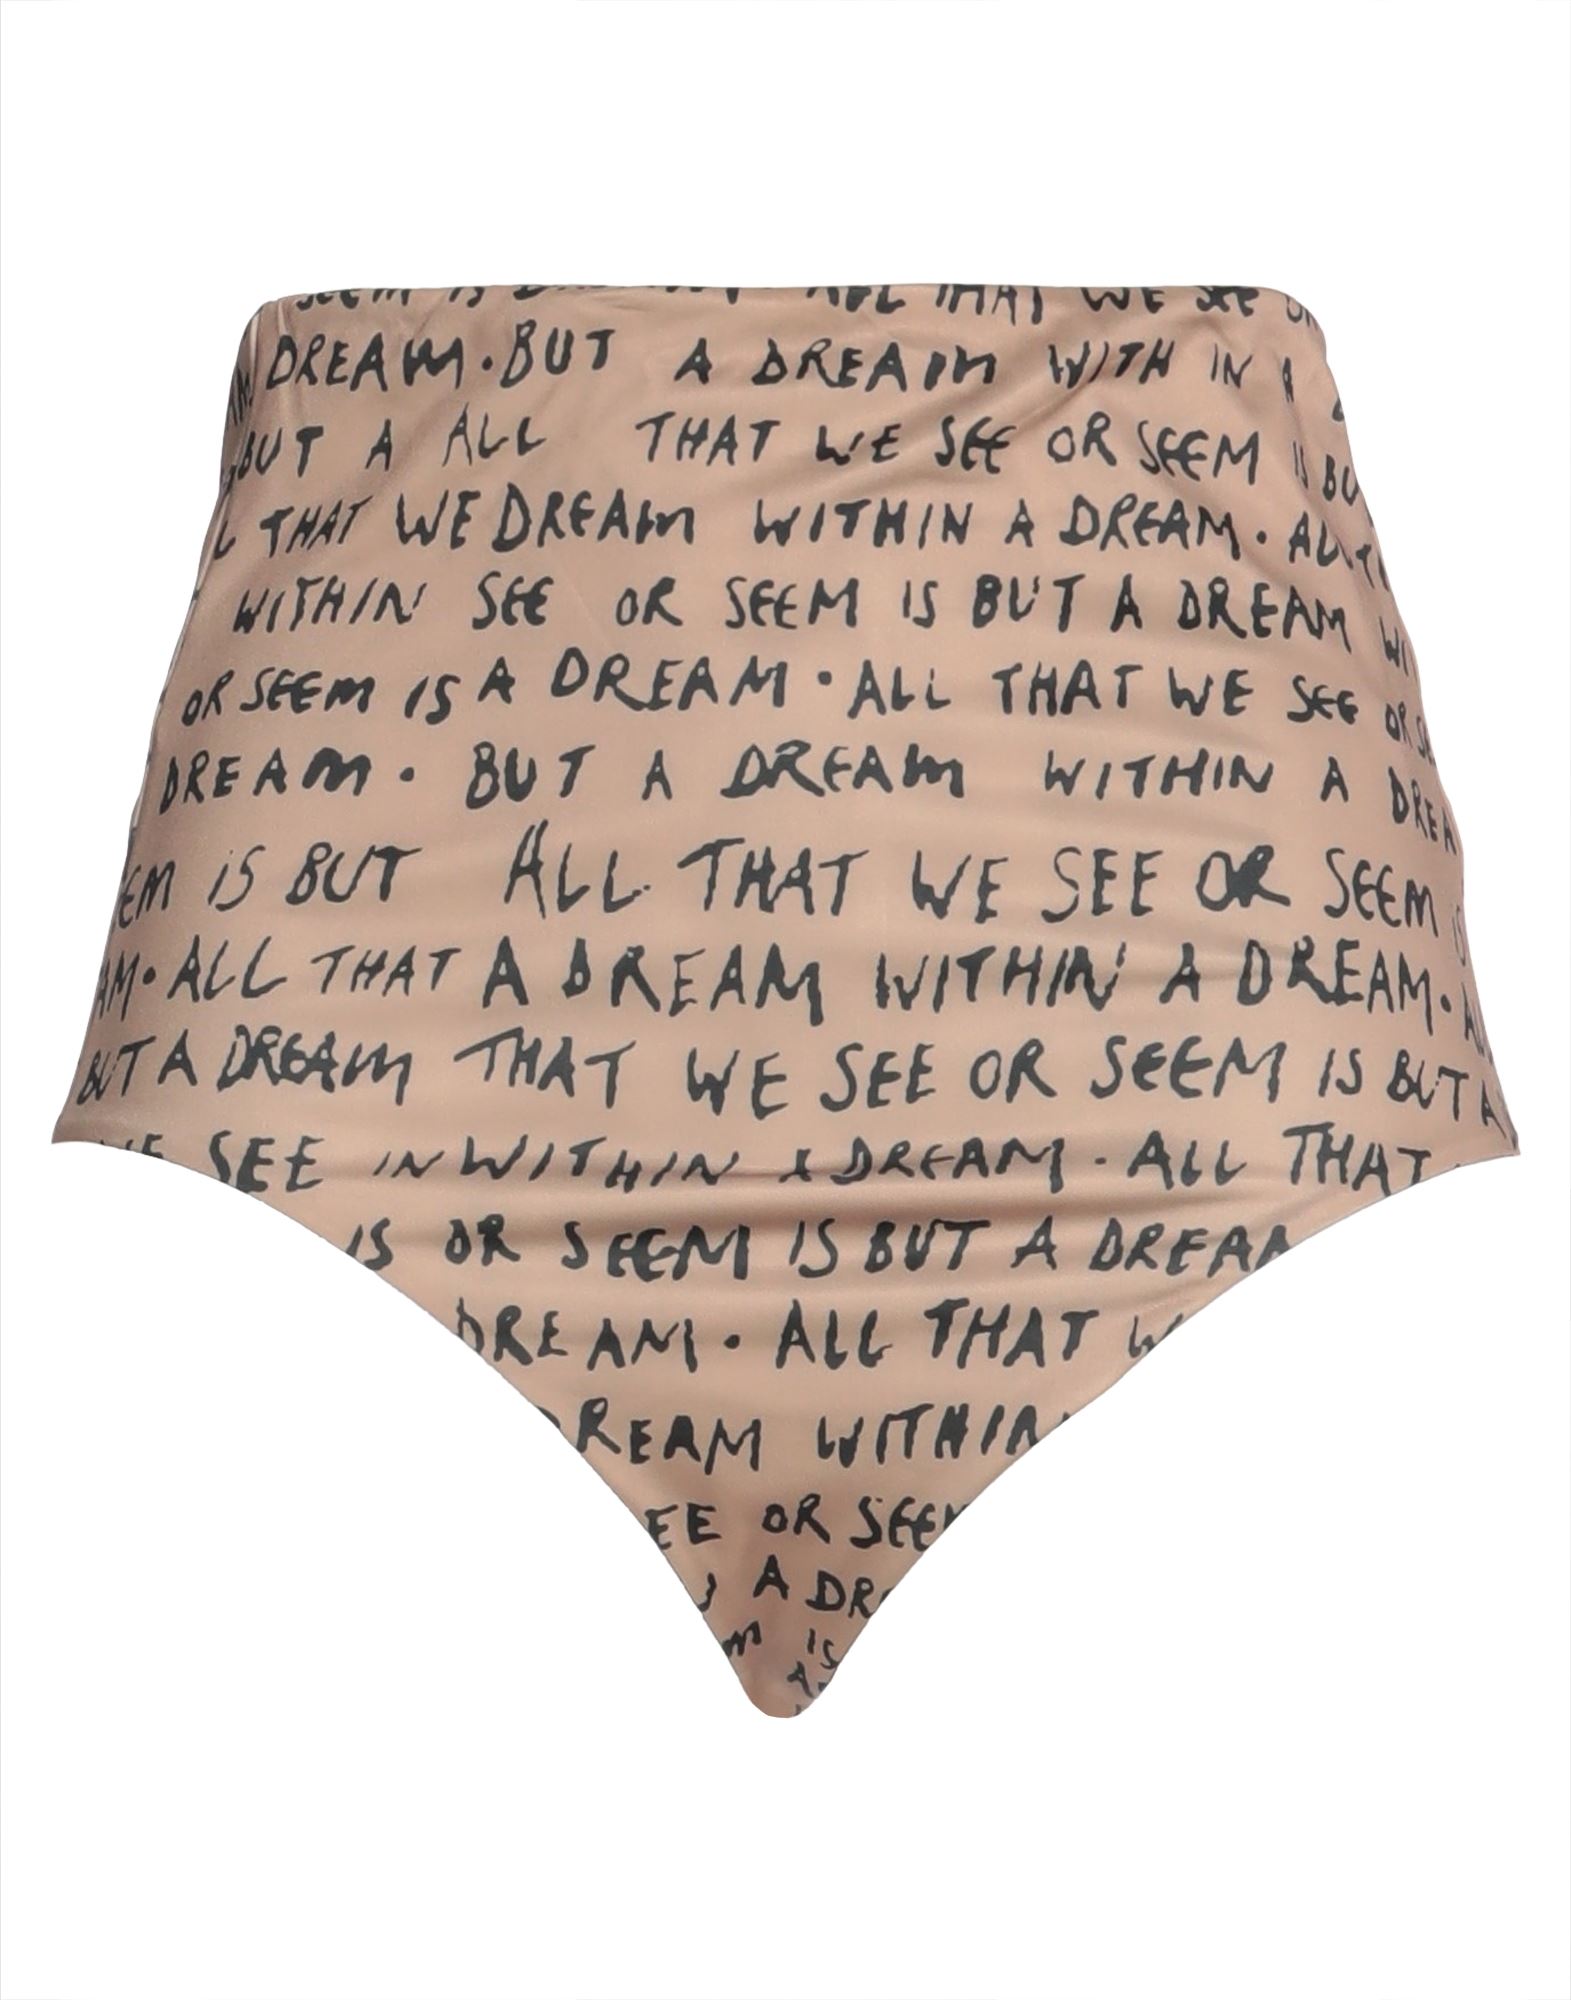 ALL THAT WE SEE
DREAM · BUT A DREAM WITH IN A
BUT A ALL THAT WE SEE OR SEEM IS BU
L THAT WE DREAM WITHIN A DREAM · ALL
WITHIN SEE OR SEEM IS BUT A DREAM WI
OR SEEM IS A DREAM · ALL THAT WE SEE OR SE
DREAM · BUT A DREAM WITHIN A DREA
EM IS BUT ALL THAT WE SEE OR SEEM
AM · ALL THAT A DREAM WITHIN A DREAM ·
BUT A DREAM THAT WE SEE OR SEEM IS BUT A
SEE IN WITHIN A DREAM · ALL THAT
IS OR SEEM IS BUT A DREAM
DREAM · ALL THAT W
DREAM WITHIN
EE OR SEEM
A DR
IS